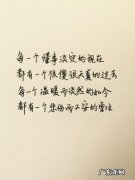 每一个懂事淡定的现在
都有一个很傻很天真的过去
每一个温暖而淡然的如今
都有一个悲伤而不安的曾经